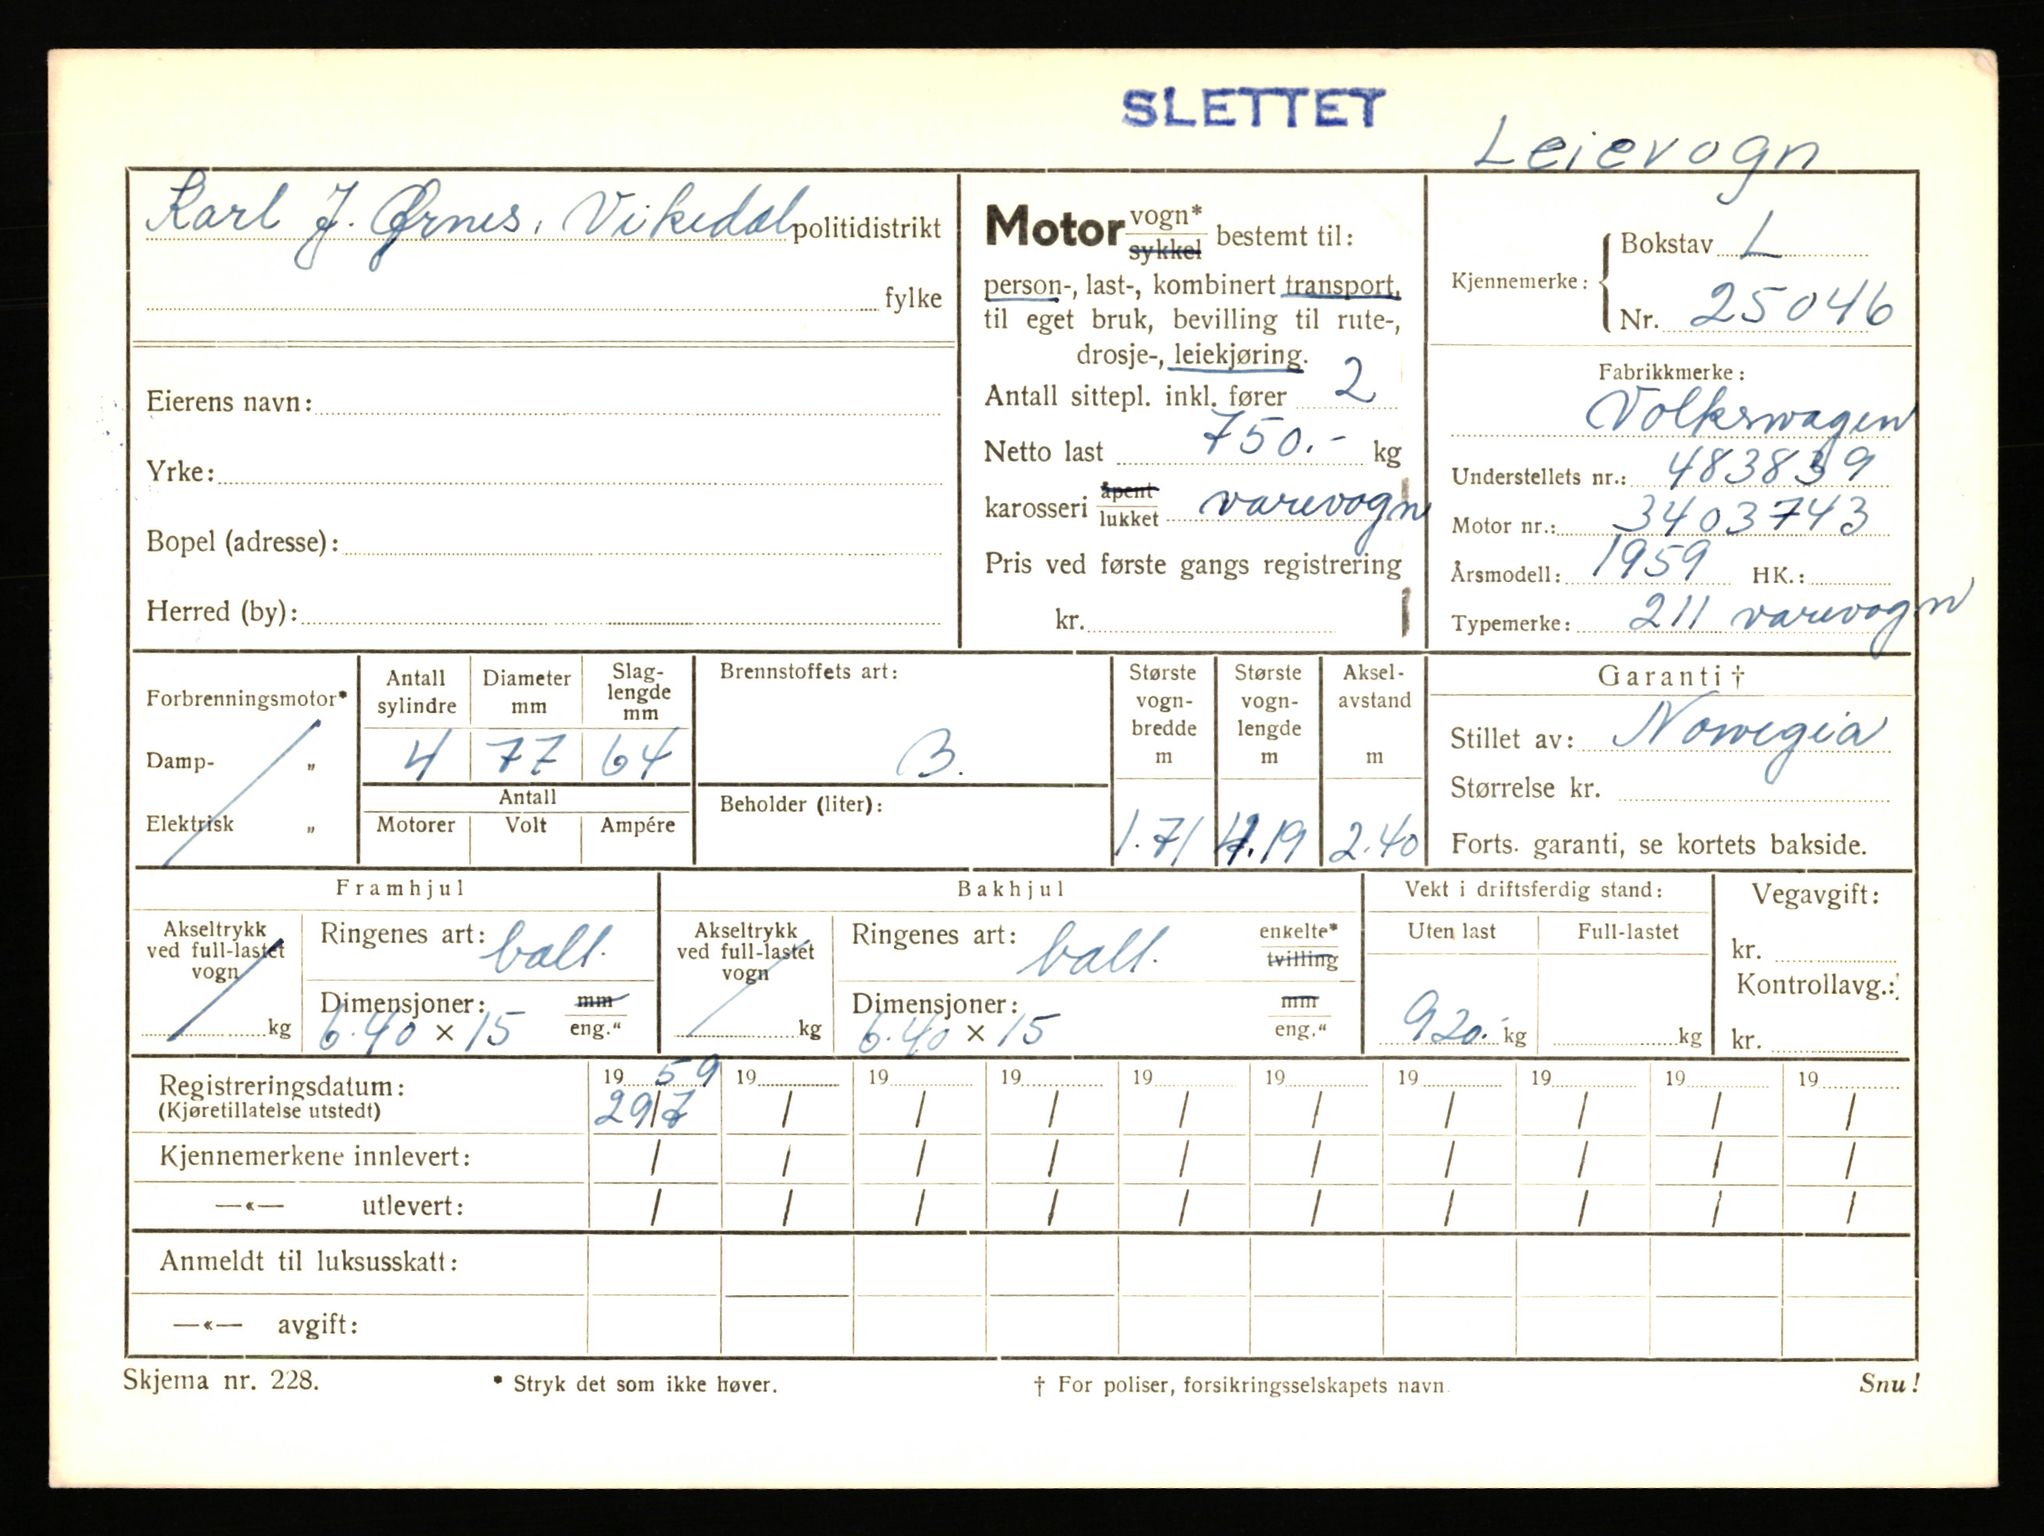 SLETTET
Leievogn
Karl J. Ørnes, Vikedal politidistrikt
fylke
Eierens navn:
Yrke:
Bopel (adresse):
Herred (by):
Motor vogn* sykkel bestemt til:
person-, last-, kombinert transport,
til eget bruk, bevilling til rute-,
drosje-, leiekjøring.
Antall sittepl. inkl. fører 2
Netto last 750.- kg
karosseri åpent lukket varevogn
Pris ved første gangs registrering
kr.
Kjennemerke: Bokstav L
Nr. 25046
Fabrikkmerke:
Volkswagen
Understellets nr.: 483839
Motor nr.: 3403743
Årsmodell: 1959 HK.:
Typemerke: 211 varevogn
Forbrenningsmotor*
Damp- „
Elektrisk „
Antall sylindre Diameter mm Slag-lengde mm
4 77 64
Antall
Motorer Volt Ampére
Brennstoffets art:
B.
Beholder (liter):
Største vogn-bredde m
1.71
Største vogn-lengde m
4.19
Aksel-avstand m
2.40
Garanti †
Stillet av: Norwegia
Størrelse kr.
Forts. garanti, se kortets bakside.
Framhjul
Akseltrykk ved full-lastet vogn kg
Ringenes art: ball.
Dimensjoner: mm eng."
6.40 × 15
Bakhjul
Akseltrykk ved full-lastet vogn kg
Ringenes art: ball. enkelte* tvilling
Dimensjoner: mm eng."
6.40 × 15
Vekt i driftsferdig stand:
Uten last Full-lastet
920.- kg kg
Vegavgift:
kr.
Kontrollavg.:
kr.
Registreringsdatum: 19 59 19 19 19 19 19 19 19 19 19
(Kjøretillatelse utstedt) 29/7 / / / / / / / / /
Kjennemerkene innlevert: / / / / / / / / / /
—«— utlevert: / / / / / / / / / /
Anmeldt til luksusskatt:
—«— avgift:
Skjema nr. 228. * Stryk det som ikke høver. † For poliser, forsikringsselskapets navn Snu!